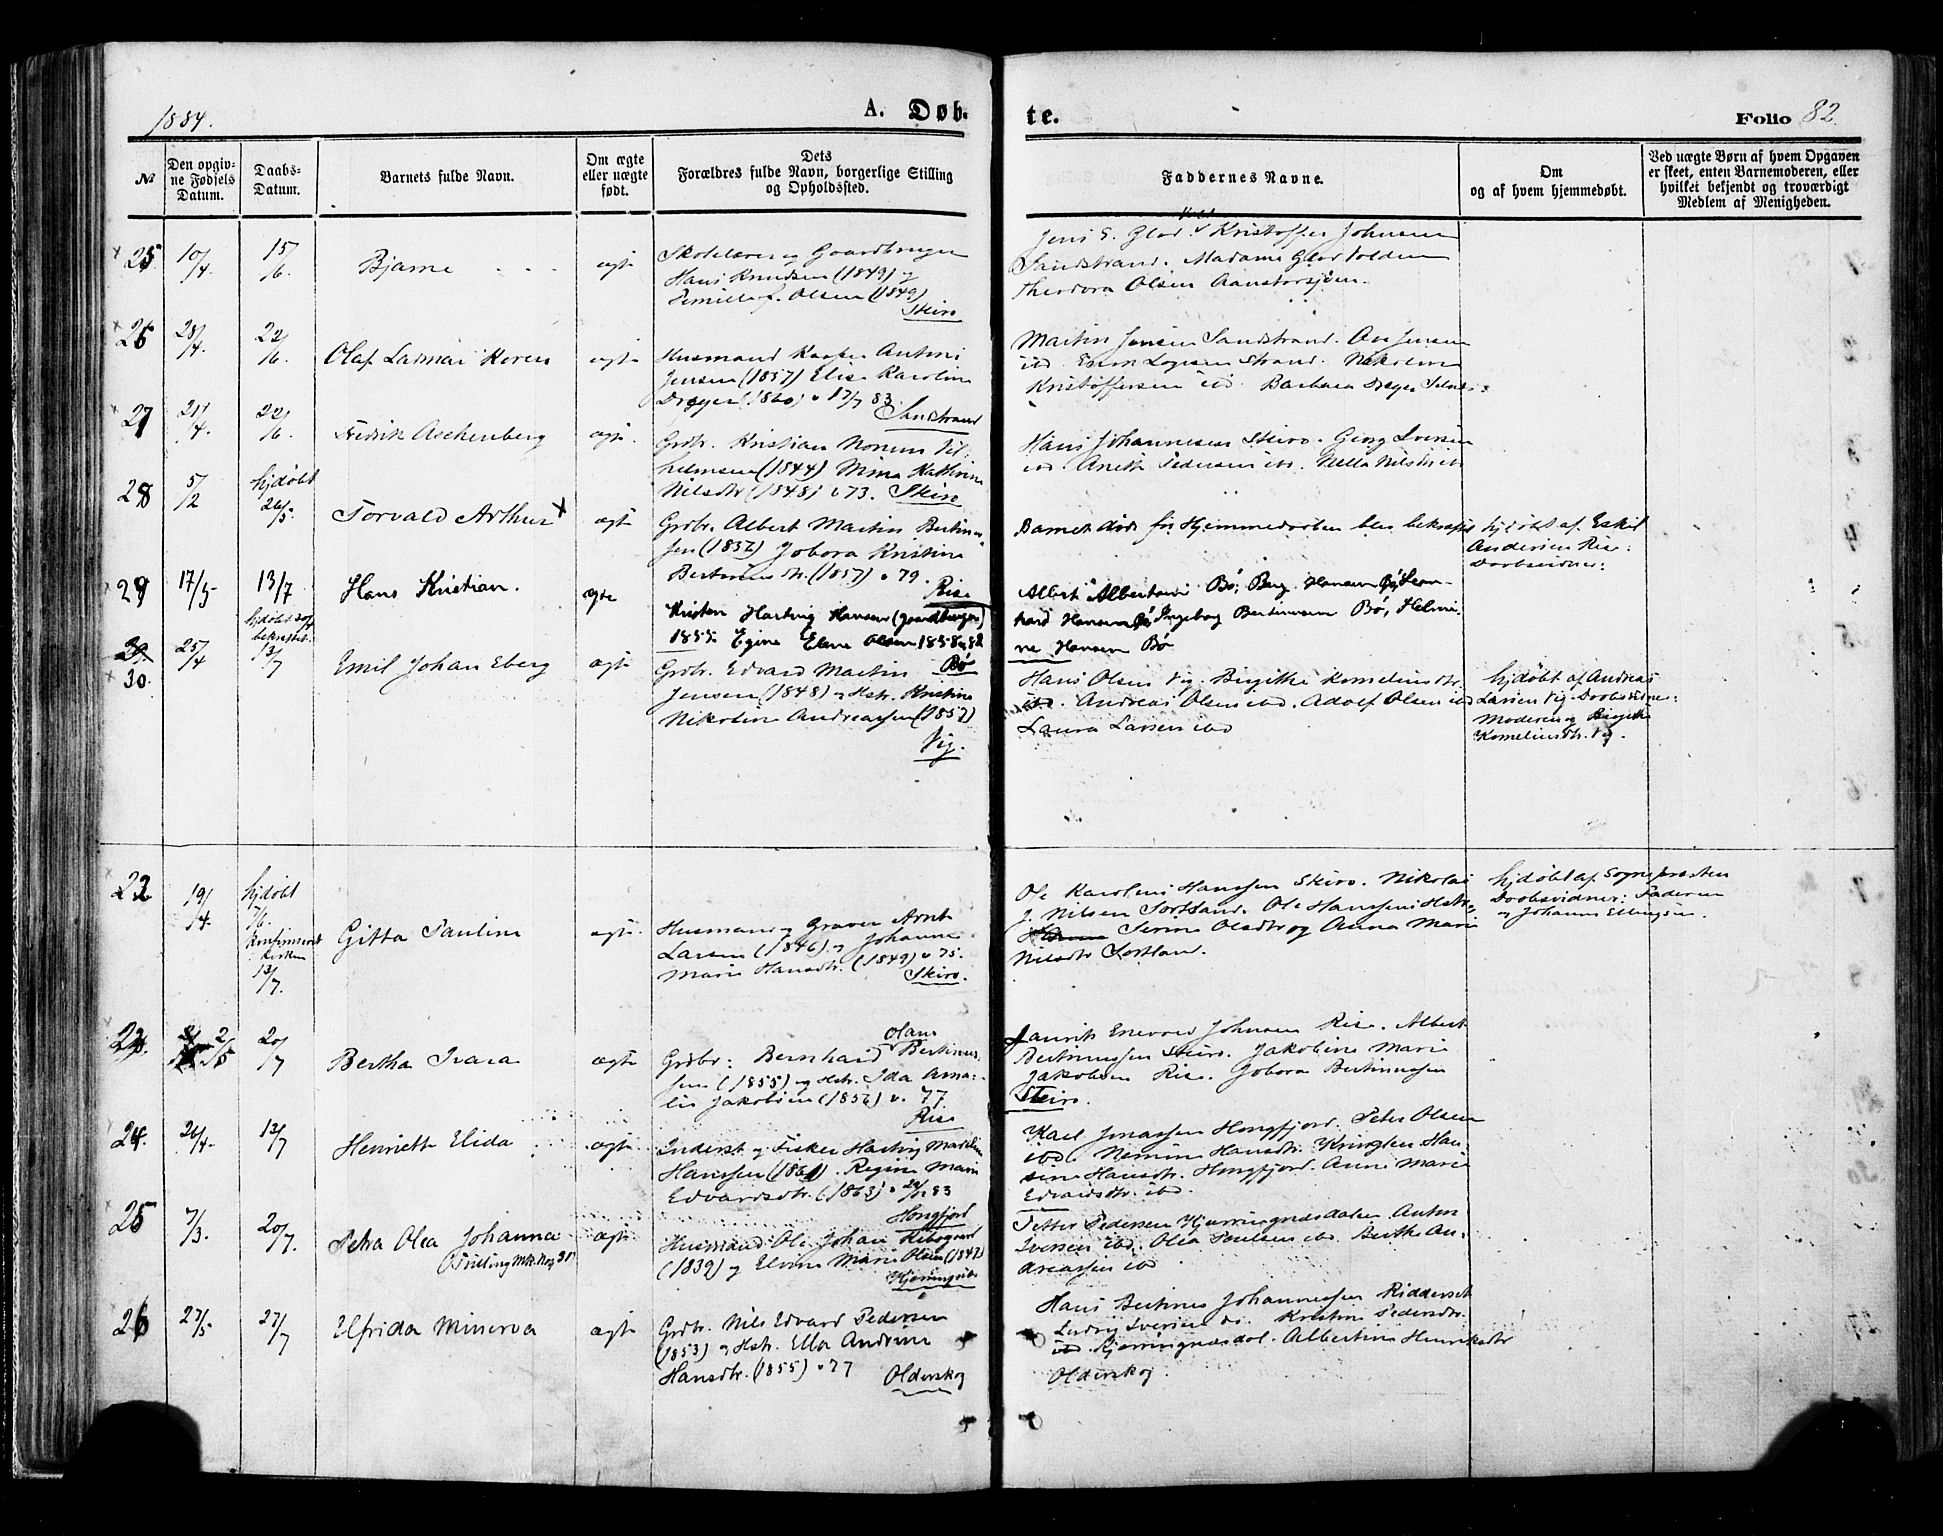 1884.
A. Døb-
te.
Folio 82.
№
Den opgiv-
ne Fødsels
Datum.
Daabs-
Datum.
Barnets fulde Navn.
Om ægte
eller uægte
født.
Dets
Forældres fulde Navn, borgerlige Stilling
og Opholdssted.
Faddernes Navne.
Om
og af hvem hjemmedøbt.
Ved uægte Børn af hvem Opgaven
er skeet, enten Barnemoderen, eller
hvilket bekjendt og troværdigt
Medlem af Menigheden.
25
10/4.
15/6.
Bjarne
ægte
Skolelærer og Gaardbruger
Hans Knudsen (1843) og
Pernille f. Olsen (1849)
Skiro
Jens E. Glad. Kristoffer Johnsen
Sandstrand. Madame Glad
Theodora Olsen
26
28/4.
22/6.
Olaf Ladmar
ægte
Husmand Kasper Antoni
Jensen (1857) Elise Karoline
Dreyer (1860) v 17/7 83.
Sandstrand
Martin Jensen Sandstrand. Ole Jensen
ibd. Strand.
Kristoffersen ibd. Barbara Dreyer
27
21/4.
22/6.
Fedrik Aschenberg
ægte.
Grdbr. Kristian Vil-
helmsen (1844) Mina Kathrine
Nilsdtr (1848) v 73. Skiro
Hans Johannesen Skiro. Georg Iversen
ibd Anette Pedersen ibd. Nella Nilsdtr ibd
28
5/2
hjdøbt
26/5.
Torvald Arthur x
ægte
Grdbr. Albert Martin Bertinus-
sen (1852) Jobora Kristine
Bertinusdtr. (1857) v 79.
Rise
Barnet døde før Hjemmedaaben blev bekræftet
hjdøbt af Eskil
Andersen Rise:
Daabsvidner:
29
17/5
13/7
Hans Kristian.
ægte
Kristen Hartvig Hansen (gaardbruger)
1855. Egine Elene Olsen 1858 v. 82
Bø
Albert Albertsen Bø, Berg Hansen Bø, Leon-
hard Hansen Bø Ingeborg Bertinusen Bø, Helmi-
ne Hansen Bø
30.
25/4
hjdøbt 30/4
bekræftet
13/7
Emil Johan Eberg
ægte
Grdbr. Edvard Martin
Jensen (1848) og Hstr. Kristine
Nikoline Andreassen (1857)
Vig.
Hans Olsen Vig. Birgithe Korneliusdtr.
ibd. Andreas Olsen ibd. Adolf Olsen ibd
Laura Larsen ibd
hjdøbt af Andreas
Larsen Vig. Daabsvidner:
Moderen og Birgithe
Korneliusdtr. Vig.
22
19/4.
hjdøbt
7/6.
Konfirmeret
i Kirken
13/7.
Gitta Pauline
ægte.
Husmand og Graver Arnt
Larsen (1846) og Johanne
Marie Hansdtr. (1849) v 75.
Skiro.
Ole Karolius Hanssen Skiro. Nikolai
J. Nilsen Sortland. Ole Hanssens Hstr.
Serine Olsdtr og Anna Marie
Nilsdtr Sortland.
hjdøbt af Sognepræsten
Daabsvidner: Faderen
og Johannes Ellingsen.
23.
2/5
20/7
Bertha Ivara
ægte
Grdbr: Bernhard Olaus Bertinus-
sen (1855) og Hstr. Ida Ama-
lie Jakobsen (1856) v. 77
Rise
Laurits Enevold Johnsen Rise. Albert
Bertinussen Skiro. Jakobine Marie
Jakobsen Rise. Jobora Bertinussen
Skiro.
24.
26/4.
13/7
Henriette Elida
ægte
Inderst og Fisker Hartvig Mareline
Hanssen (1861). Regine Marie
Edvardsdtr. (1863) v 83
Hongfjord
Karl Jonassen Hongfjord. Peter Olsen
ibd. Hansdtr. Kringlen Han-
sine Hansdtr. Hongfjord. Anne Marie
Edvardsdtr. ibd.
25
7/3.
20/7.
Petra Olea Johanna
(Tvilling
ægte
Husmand Ole Johan
(1839) og Elvine Marie Olsen (1842)
Petter Pedersen Kjerringnesdalen. Anton
Iversen ibd. Olea Paulsen ibd Berthe An-
dreassen ibd
26
27/5
27/7
Elfrida Minerva
ægte
Grdbr. Nils Edvard Pedersen
(1853) og Hstr. Ella Andrine
Hansdtr. (1855) v 77
Olderskog
Hans Bertinus Johannessen Ridderset
Ludvig Iversen do. Kristine Pedersdtr.
ibd Kjerringnesdal. Albertine Henriksdtr
Olderskog.